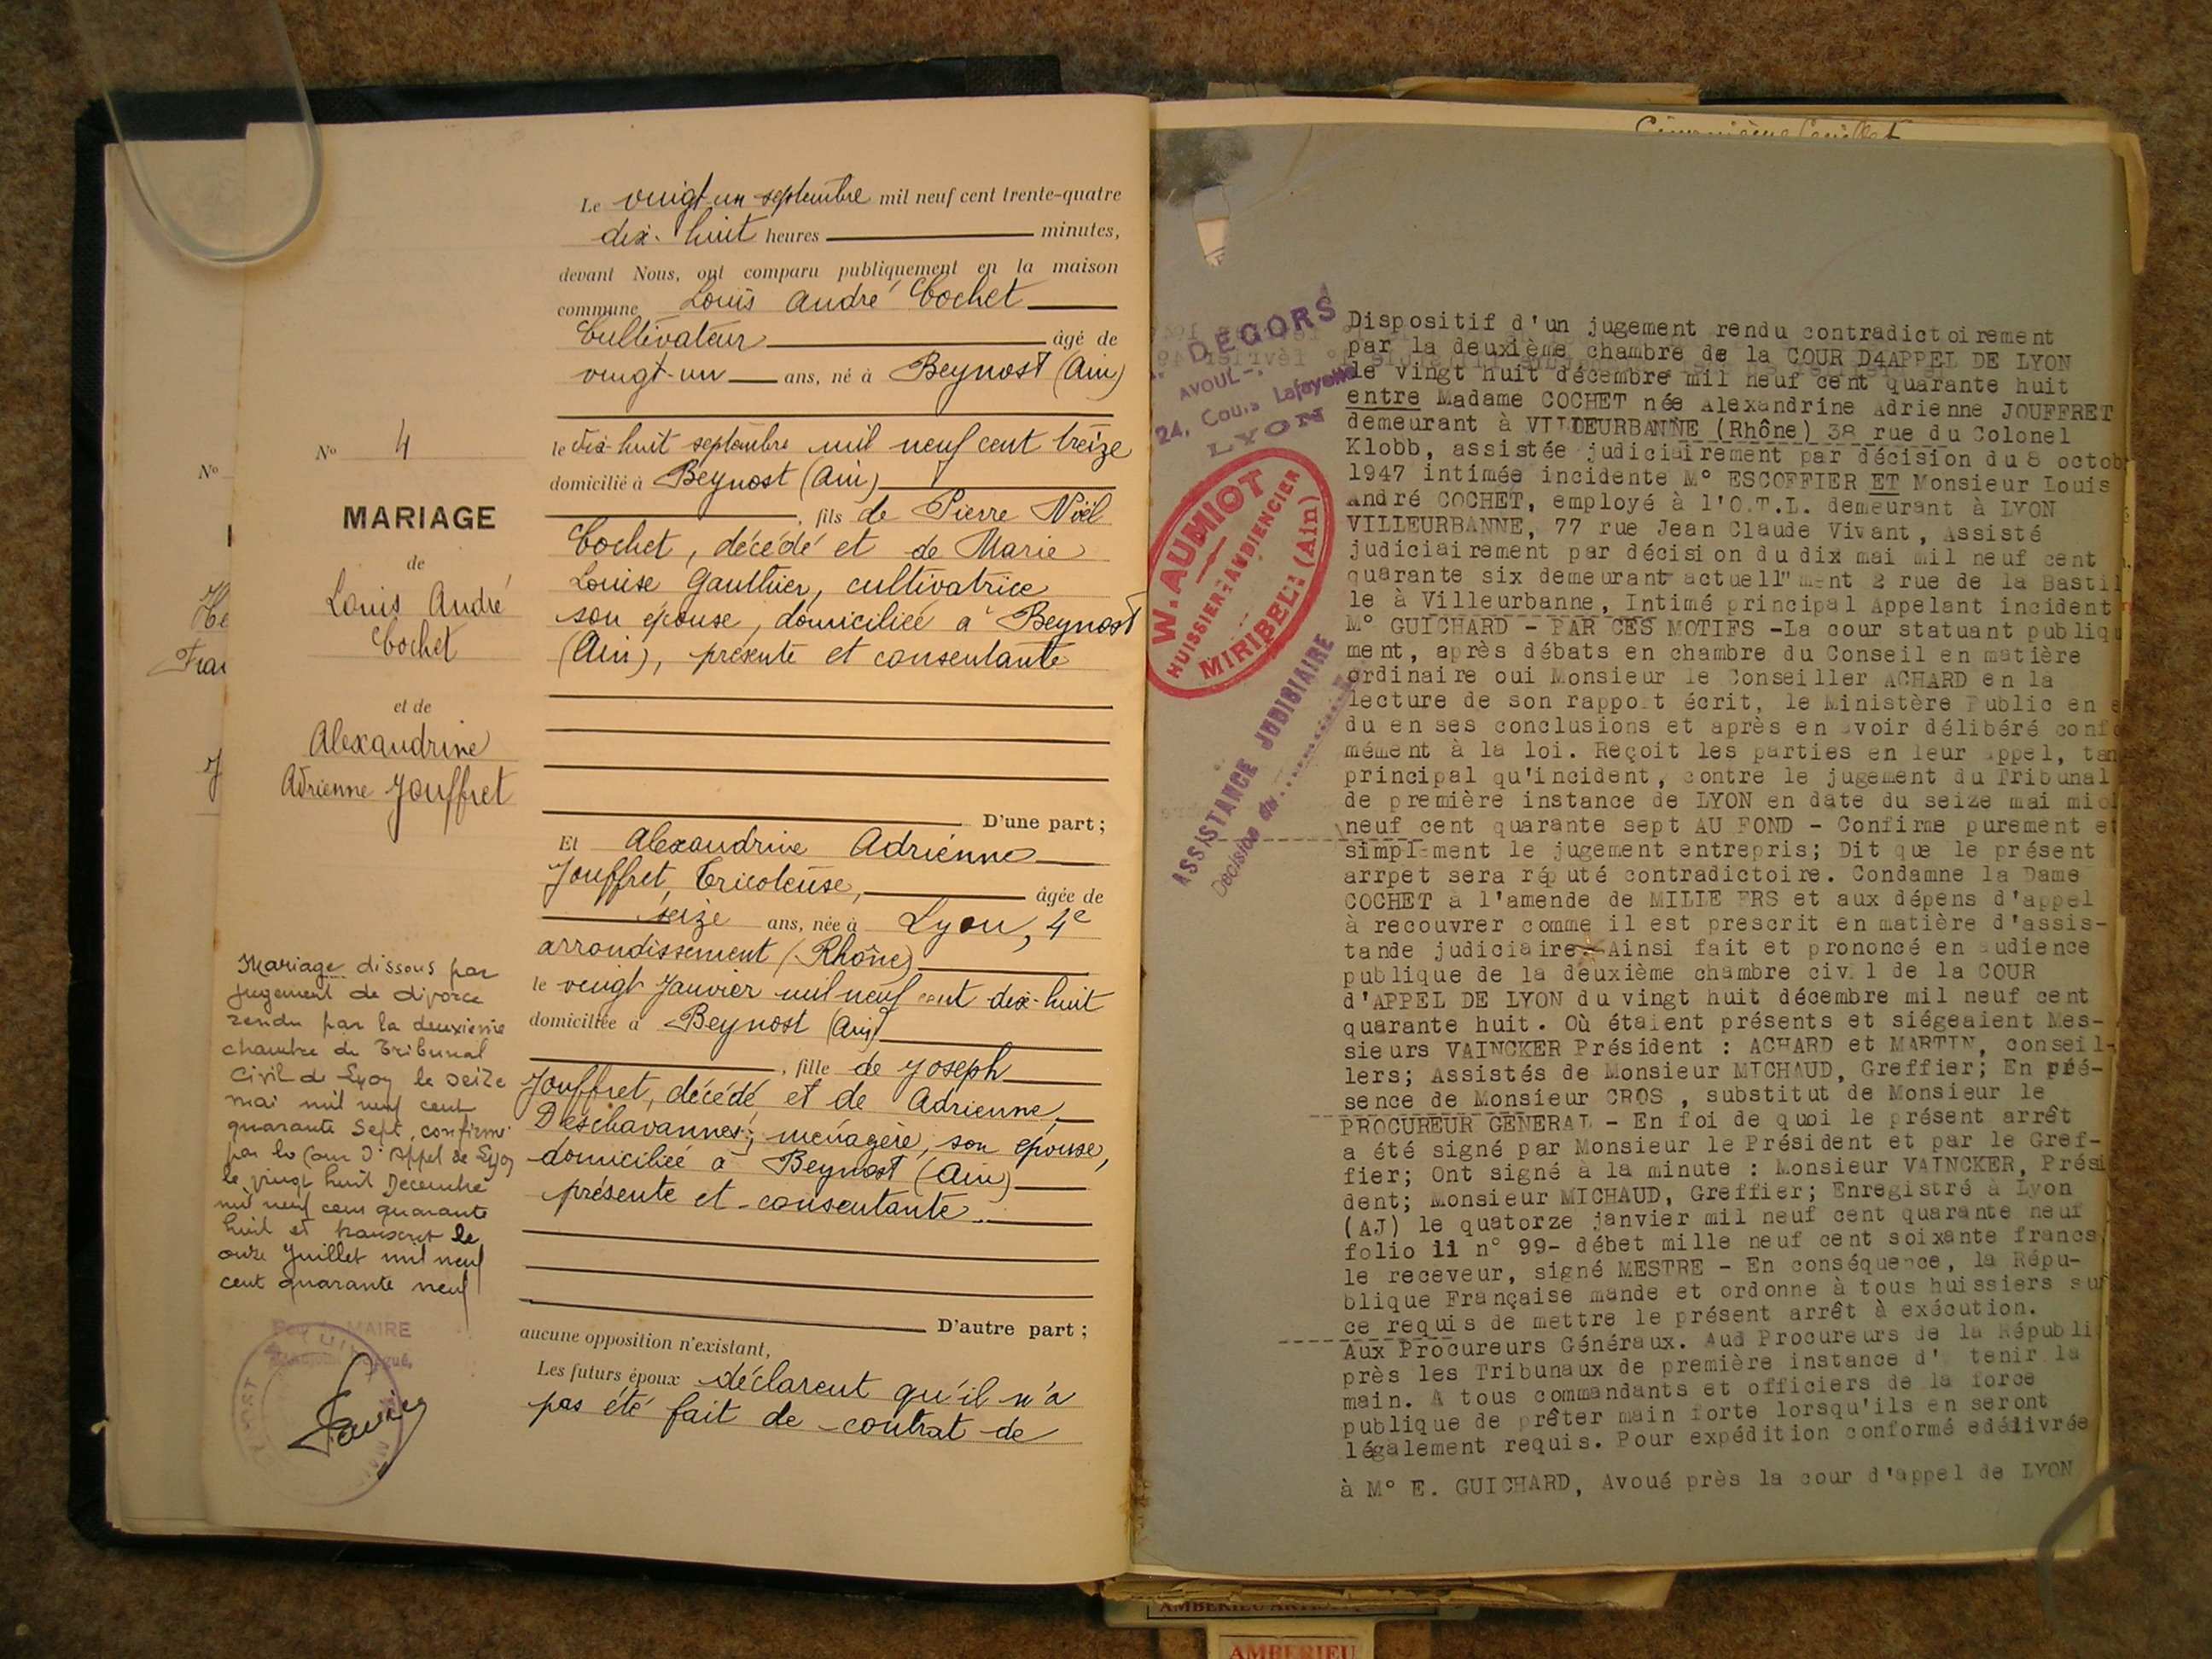 N°
He
Fran
N° 4
MARIAGE
de
Louis André
Cochet
et de
Alexandrine
Adrienne Jouffret
Mariage dissous par
jugement de divorce
rendu par la deuxième
chambre du Tribunal
Civil de Lyon le seize
mai mil neuf cent
quarante sept, confirmé
par la Cour d'Appel de Lyon
le vingt huit Decembre
mil neuf cent quarante
huit et transcrit le
onze Juillet mil neuf
cent quarante neuf
MAIRE
Le vingt-un septembre mil neuf cent trente-quatre
dix-huit heures minutes,
devant Nous, ont comparu publiquement en la maison
commune Louis André Cochet
Cultivateur âgé de
vingt-un ans, né à Beynost (Ain)
le dix-huit septembre mil neuf cent treize
domicilié à Beynost (Ain)
, fils de Pierre Noël
Cochet, décédé et de Marie
Louise Gauthier, cultivatrice
son épouse, domiciliée à Beynost
(Ain), présente et consentante
D'une part ;
Et Alexandrine Adrienne
Jouffret, Tricoteuse, âgée de
seize ans, née à Lyon, 4e
arrondissement (Rhône)
le vingt Janvier mil neuf cent dix-huit
domiciliée à Beynost (Ain)
, fille de Joseph
Jouffret, décédé et de Adrienne
Deschavannes, ménagère, son épouse,
domiciliée à Beynost (Ain)
présente et consentante.
D'autre part ;
aucune opposition n'existant,
Les futurs époux déclarent qu'il n'a
pas été fait de contrat de
DEGORS
AVOUÉ
24, Cours Lafayette
LYON
W. AUMIOT
HUISSIER-AUDIENCIER
MIRIBEL (Ain)
ASSISTANCE JUDICIAIRE
Décision du
Dispositif d'un jugement rendu contradictoirement
par la deuxième chambre de la COUR D4APPEL DE LYON
le vingt huit décembre mil neuf cent quarante huit
entre Madame COCHET née Alexandrine Adrienne JOUFFRET
demeurant à VILLEURBANNE (Rhône) 38 rue du Colonel
Klobb, assistée judiciairement par décision du 8 octob
1947 intimée incidente M° ESCOFFIER ET Monsieur Louis
André COCHET, employé à l'O.T.L. demeurant à LYON
VILLEURBANNE, 77 rue Jean Claude Vivant, Assisté
judiciairement par décision du dix mai mil neuf cent
quarante six demeurant actuell"ment 2 rue de la Bastil
le à Villeurbanne, Intimé principal Appelant incident
M° GUICHARD - PAR CES MOTIFS -La cour statuant publiqu
ment, après débats en chambre du Conseil en matière
ordinaire oui Monsieur le Conseiller ACHARD en la
lecture de son rapport écrit, le Ministère Public en e
du en ses conclusions et après en avoir délibéré confo
mément à la loi. Reçoit les parties en leur appel, tan
principal qu'incident, contre le jugement du Tribunal
de première instance de LYON en date du seize mai mil
neuf cent quarante sept AU FOND - Confirme purement et
simplement le jugement entrepris; Dit que le présent
arrpet sera réputé contradictoire. Condamne la Dame
COCHET à l'amende de MILLE FRS et aux dépens d'appel
à recouvrer comme il est prescrit en matière d'assis-
tande judiciaire.-Ainsi fait et prononcé en audience
publique de la deuxième chambre civil de la COUR
d'APPEL DE LYON du vingt huit décembre mil neuf cent
quarante huit. Où étaient présents et siégeaient Mes-
sieurs VAINCKER Président : ACHARD et MARTIN, conseil-
lers; Assistés de Monsieur MICHAUD, Greffier; En pré-
sence de Monsieur CROS , substitut de Monsieur le
PROCUREUR GENERAL - En foi de quoi le présent arrêt
a été signé par Monsieur le Président et par le Gref-
fier; Ont signé à la minute : Monsieur VAINCKER, Prési
dent; Monsieur MICHAUD, Greffier; Enregistré à Lyon
(AJ) le quatorze janvier mil neuf cent quarante neuf
folio 11 n° 99- débet mille neuf cent soixante francs
le receveur, signé MESTRE - En conséquence, la Répu-
blique Française mande et ordonne à tous huissiers sur
ce requis de mettre le présent arrêt à exécution.
Aux Procureurs Généraux. Aud Procureurs de la Républi
près les Tribunaux de première instance d' tenir la
main. A tous commandants et officiers de la force
publique de prêter main forte lorsqu'ils en seront
légalement requis. Pour expédition conformé edélivrée
à M° E. GUICHARD, Avoué près la cour d'appel de LYON
AMBERIEU